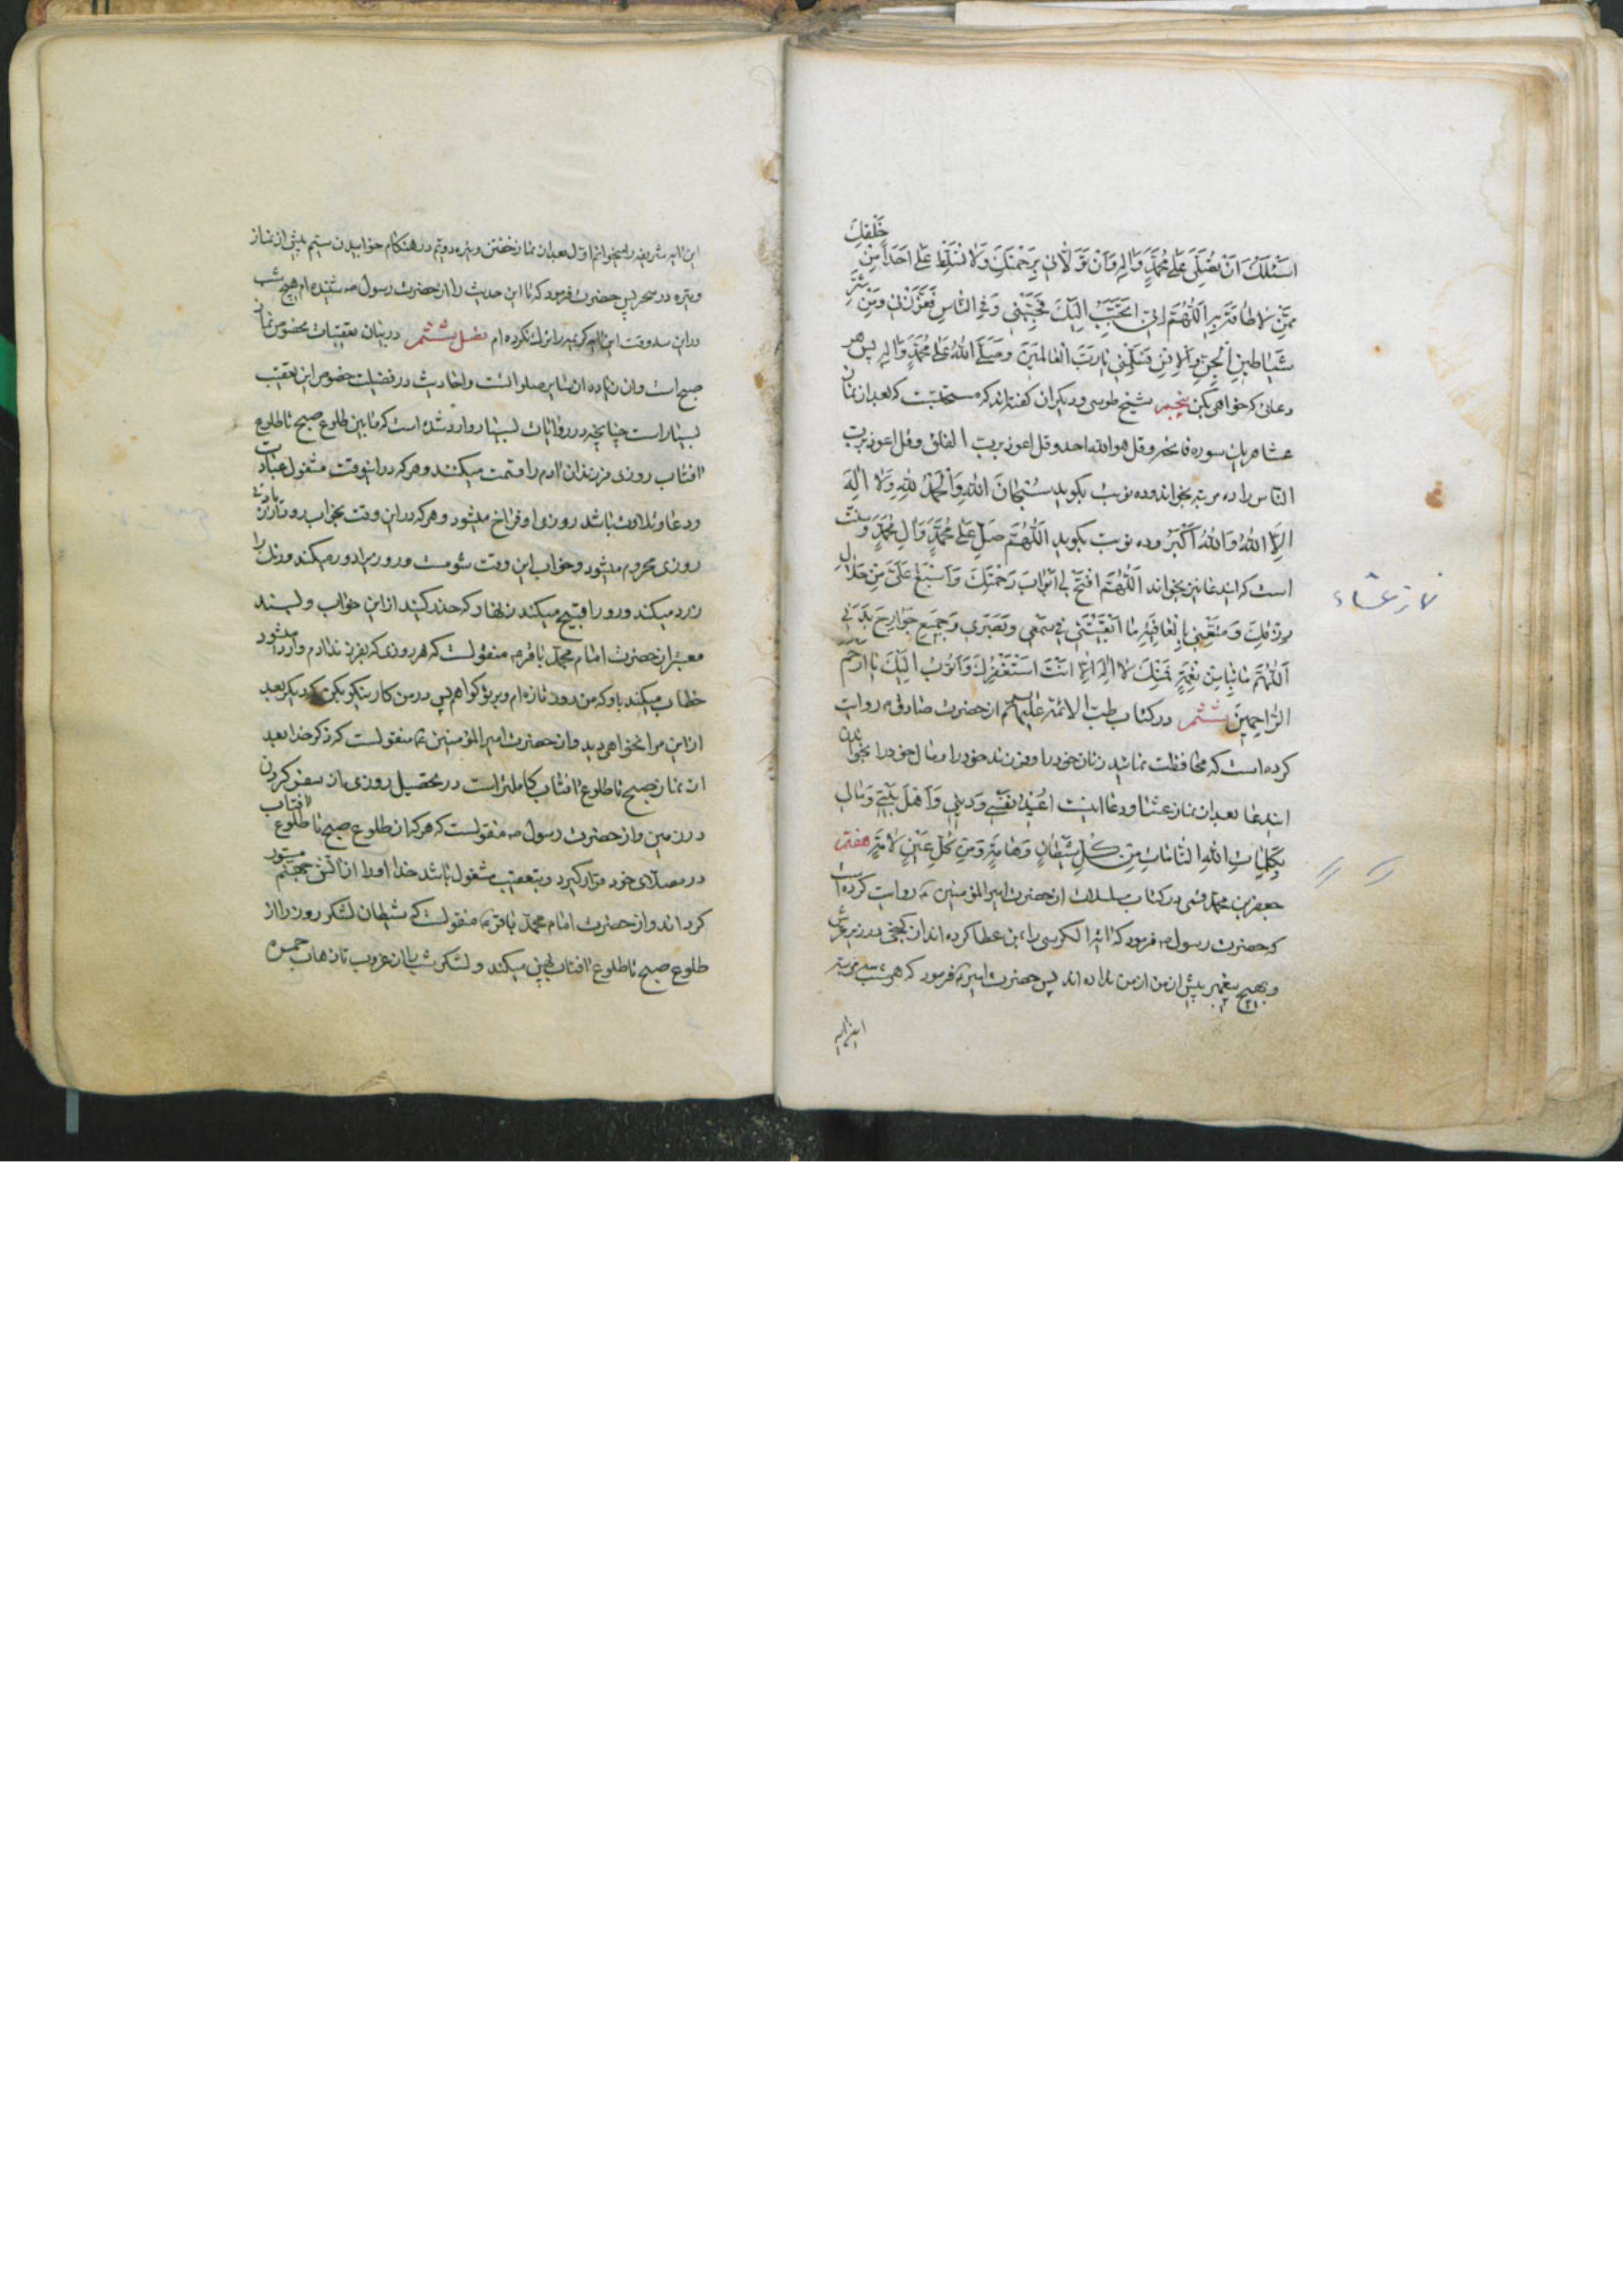 اسئلک ان تصلی علی محمد واله وان تولانی برحمتک ولا تسلط علی احدا من خلقک
ممن لا طاقة لی به اللهم انی اتحبب الیک فحببنی وفی الناس فعززنی ومن شر
شیاطین الجن والانس فسلمنی یا رب العالمین وصلی الله علی محمد واله پس هر
دعائی که خواهی بکن پنجم شیخ طوسی و دیگران گفته‌اند که مستحبست که بعد از نماز
عشا هریک سوره فاتحه و قل هو الله احد و قل اعوذ برب الفلق و قل اعوذ برب
الناس را ده مرتبه بخواند و ده نوبت بگوید سبحان الله والحمد لله ولا اله
الا الله والله اکبر و ده نوبت بگوید اللهم صل علی محمد وال محمد و سنت
است که این دعا نیز بخواند اللهم افتح لی ابواب رحمتک واسبغ علی من حلال
رزقک ومتعنی بالعافیة ما ابقیتنی فی سمعی وبصری وجمیع جوارح بدنی
اللهم ما بنا من نعمة فمنک لا اله الا انت استغفرک واتوب الیک یا ارحم
الراحمین ششم در کتاب طب الائمه علیهم السلم از حضرت صادق ع روایت
کرده است که محافظت نمائید زنان خود را و فرزند خود را و مال خود را بخواندن
این دعا بعد از نماز عشا و دعا اینست اعیذ نفسی ودینی واهل بیتی ومالی
بکلمات الله التامات من کل شیطان وهامة ومن کل عین لامة هفتم
جعفر بن محمد قمی در کتاب مسلسلات از حضرت امیر المؤمنین ع روایت کرده است
که حضرت رسول ص فرمود که ایة الکرسی را بمن عطا کرده اند از گنجی در زیر عرش
و بهیچ پیغمبر پیش از من نداده اند پس حضرت امیر ع فرمود که هر شب سه مرتبه
این ایه
نماز عشاء
این ایه شریفه را میخوانم اول بعد از نماز خفتن و وتیره دویم در هنگام خوابیدن سیم پیش از نماز
وتیره در سحر پس حضرت فرمود که تا این حدیث را از حضرت رسول ص شنیده ام هیچ شب
در این سه وقت این ایه کریمه را ترک نکرده ام فصل ششم در بیان تعقیبات مخصوص نماز
صبح است وان زیاده از سایر صلوات است و احادیث در فضیلت خصوص این تعقیب
بسیار است چنانچه در روایات بسیار وارد شده است که مابین طلوع صبح تا طلوع
آفتاب روزی فرزندان آدم را قسمت میکنند و هر که در اینوقت مشغول عبادت
و دعا و تلاوت باشد روزی او فراخ میشود و هر که در این وقت بخواب رود از زیادتی
روزی محروم میشود و خواب این وقت شومست و روزی را دور میکند و رنگ را
زرد میکند و رو را قبیح میکند زنهار که حذر کنید از این خواب و بسند
معتبر از حضرت امام محمد باقر ع منقولست که هر روزی که بفرزند آدم وارد میشود
خطاب میکند باو که من روز تازه ام و بر تو گواهم پس در من کار نیکو بکن که دیگر بعد
از این مرا نخواهی دید و از حضرت امیر المؤمنین ع منقولست که ذکر خدا بعد
از نماز صبح تا طلوع آفتاب کاملتر است در تحصیل روزی از سفر کردن
در زمین و از حضرت رسول ص منقولست که هر که از طلوع صبح تا طلوع آفتاب
در مصلای خود قرار گیرد و بتعقیب مشغول باشد خدا او را از آتش جهنم مستور
گرداند و از حضرت امام محمد باقر ع منقولست که شیطان لشکر روز را از
طلوع صبح تا طلوع آفتاب پهن میکند و لشکر شب را از غروب تا ذهاب حمره